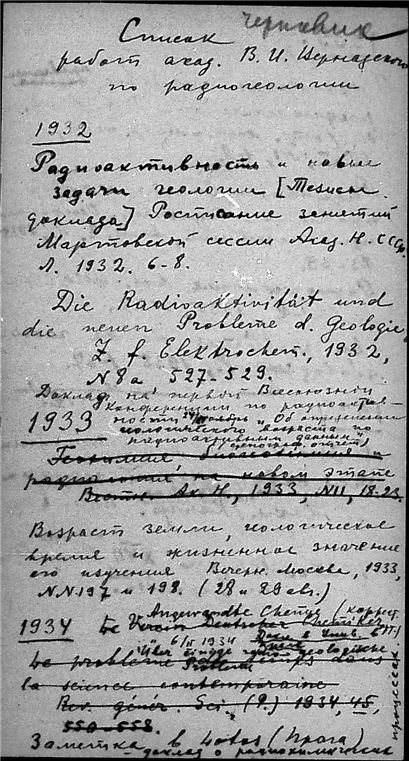 черновик
Список
работ акад. В. И. Вернадского
по радиогеологии
1932
Радиоактивность и новые
задачи геологии [Тезисы
доклада] Расписание занятий
Мартовской сессии Акад. Н. СССР.
Л. 1932. 6-8.
Die Radioaktivität und
die neuen Probleme d. Geologie,
Z. f. Elektrochem., 1932,
N 8a 527-529.
Доклад на первой Всесоюзной
конференции по радиоактив-
ности "Об определении
1933
геологического возраста по
радиоактивным данным"
Геохимия и
радиологии на новом этапе
Вестн. Ак. Н., 1933, N11, 18-23.
Возраст земли, геологическое
время и жизненное значение
его изучения Вечерн. Москва, 1933,
N.N 197 и 198. (28 и 29 авг.)
Angewandte Chemie (коррект.
1934 Le Verein Deutscher Chemiker
6/IV 1934
Über einige geologische
Le problème du temps dans
Problem
la science contemporaine
Rev. génér. Sci. (P.) 1934, 45,
550-558.
Заметка в Lotos (Прага)
доклад о радиохимических
процессах